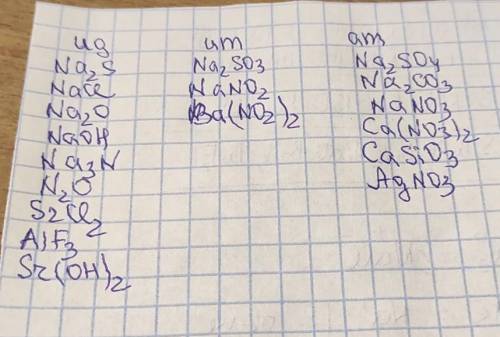 ид
Na₂S
NaCl
Na₂O
NaOH
Na₃N
N₂O
SrCl₂
AlF₃
Sr(OH)₂
ит
Na₂SO₃
NaNO₂
Ba(NO₂)₂
ат
Na₂SO₄
Na₂CO₃
NaNO₃
Ca(NO₃)₂
CaSiO₃
AgNO₃